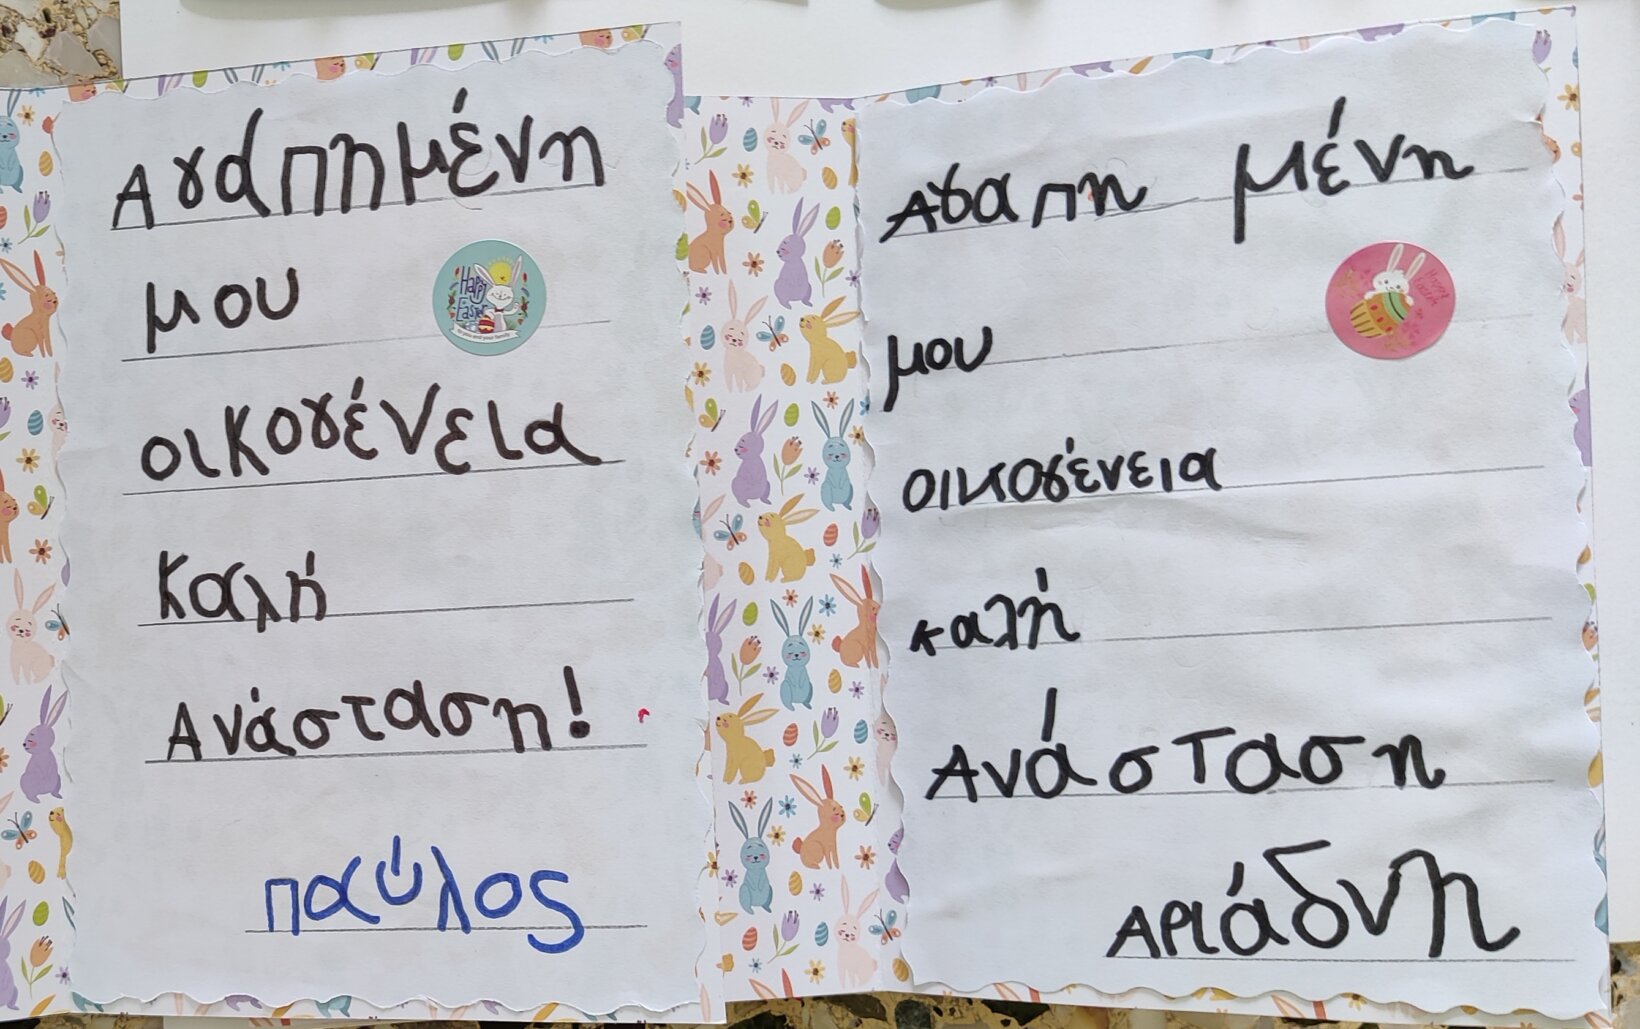 Αγαπημένη
μου
Happy
Easter
to you and your family
οικογένεια
Καλή
Ανάσταση!
παύλος
Αγαπη μένη
μου
Happy
Easter
οικογένεια
καλή
Ανάσταση
Αριάδνη